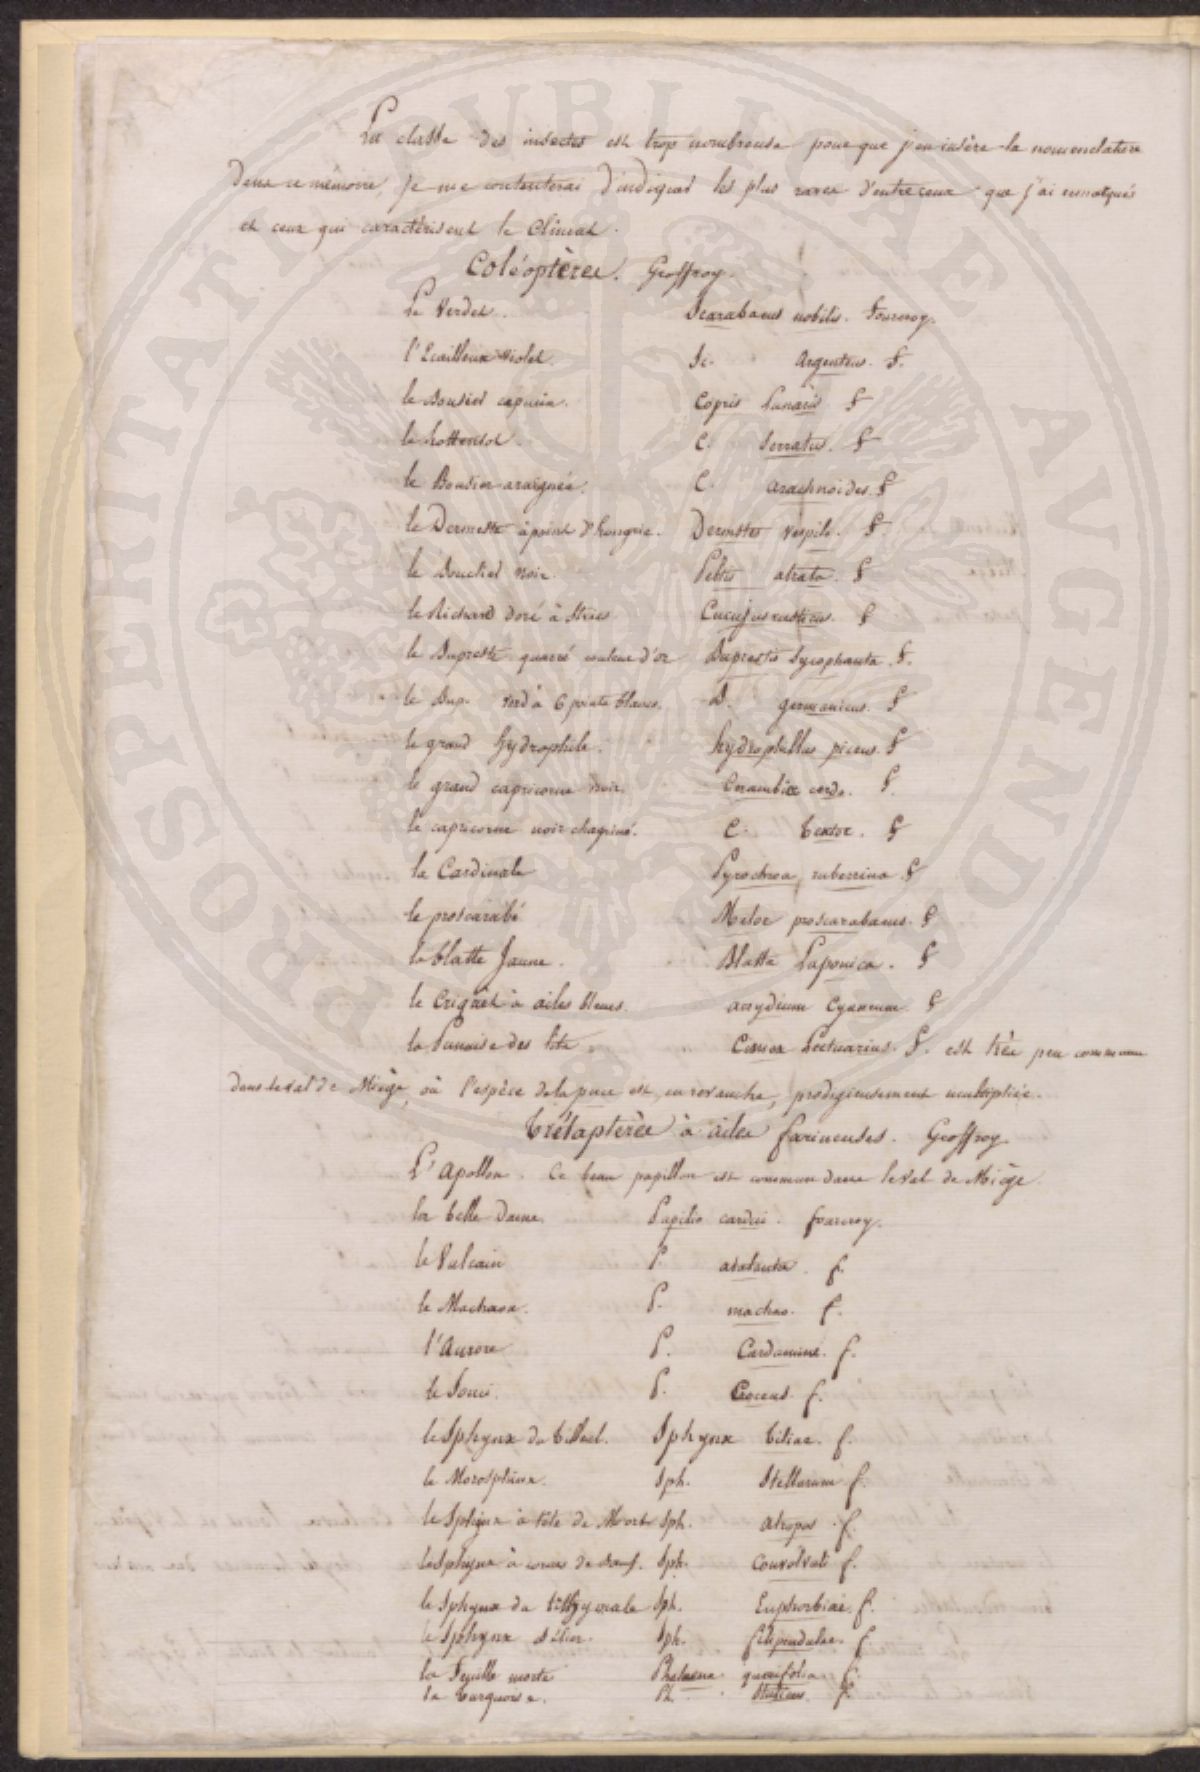 La classe des insectes est trop nombreuse pour que j'en insère la nomenclature
dans ce mémoire, Je me contenterai d'indiquer les plus rares d'entre ceux que j'ai remarqués
et ceux qui caractérisent le Climat.
Coléoptères. Geoffroy.
Le Verdet. Scarabaeus nobilis. Fourcroy.
l'Ecailleux violet. Sc. Argenteus. F.
le Bousier capucin. Copris Lunaris F
le hottentot. C. Serratus. F
le Bousier araignée. C. arachnoides. F
le Dermeste à point d'hongrie. Dermestes vespilo. F
le Bouclier noir. Peltis atrata. F
le Richard doré à stries Cucujus rusticus. F
le Bupreste quarré couleur d'or Buprestis Sycophanta. F.
le Bup. verd à 6 points blancs. B. germanicus. F
le grand hydrophile. hydrophillus piceus. F
le grand capricorne noir. Cerambix cerdo. F.
le capricorne noir chagriné. C. textor. F
la Cardinale Pyrochroa, ruberrima F
le proscarabé Meloe proscarabaeus. F
la blatte Jaune. Blatta Laponica. F
le Criquet à ailes bleues. acrydium Cyaneum F
la Punaise des lits Cimex Lectuarius. F. est très peu commune
dans le val de Miège, où l'espèce de la puce est, en revanche, prodigieusement multipliée.
tétraptères à ailes farineuses. Geoffroy.
L'apollon. Ce beau papillon est commun dans le val de Miège.
la belle Dame. Papilio cardui. fourcroy.
le Vulcain P. atalanta. f.
le Machaon. P. machao. f.
l'Aurore P. Cardamine. f.
le Souci P. Croceus. f.
le Sphynx du tilleul. Sphynx tiliae. f.
le Morosphinx. Sph. Stellarum f.
le Sphynx à tête de Mort Sph. atropos. f.
le Sphynx à cornes de bœuf. Sph. Convolvuli f.
le Sphynx du tithymale Sph. Euphorbiae. f.
le Sphynx bélier. Sph. filipendulae. f.
la Feuille morte Phalaena quercifolia. f.
la turquoise. Ph. Statices. f.
PROSPERITATI PVBLICAE AVGENDAE